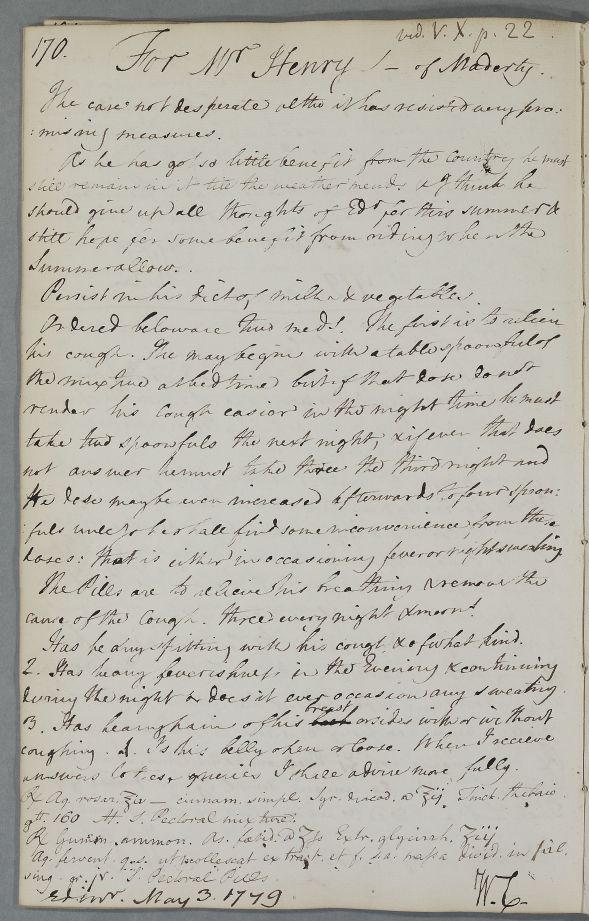 vid. V. X. p. 22.
170. For Mr Henry - of Maderty.
The case not desperate altho it has resisted very pro:
:mising measures.
As he has got so little benefit from the Country he must
still remain in it till the weather mends & I think he
should give up all thoughts of Edr for this summer &
still hope for some benefit from riding when the
Summer allow.
Persist in his diet of milk & vegetables.
Ordered below are two med:s. The first is to relieve
his cough. He may begin with a tablespoonful of
the mixture at bed time but if that dose do not
render his cough easier in the night time he must
take two spoonfuls the next night, & if ever that does
not answer he must take three the third night and
the dose may be even increased afterwards to four spoon:
:fuls unless he shall find some inconvenience from these
doses: that is either in occasioning fever or night sweating
The Pills are to relieve his breathing & remove the
cause of the Cough. three every night & morng.
Has he any spitting with his cough & of what kind.
2. Has he any feverishness in the Evening & continuing
during the night & does it ever occasion any sweating.
3. Has he any pain of his breast or sides with or without
coughing. 4. Is his belly open or loose. When I receive
answers to these queries I shall advise more fully.
℞ Aq. rosar. ℥iv — cinnam. simpl. Syr. diacod. a ℥ij. Tinct. thebaic.
gtt. 160 M. S. Pectoral mixture.
℞ Gumm. ammon. As. fœtid. a ℥ss Extr. glycirrh. ℥iij
Aq. fervent. q.s. ut mollescat extract. et f. s.a. massa divid. in pil.
sing. gr. iv. S. Pectoral Pills.
Edinr. May 3. 1779 W. C.